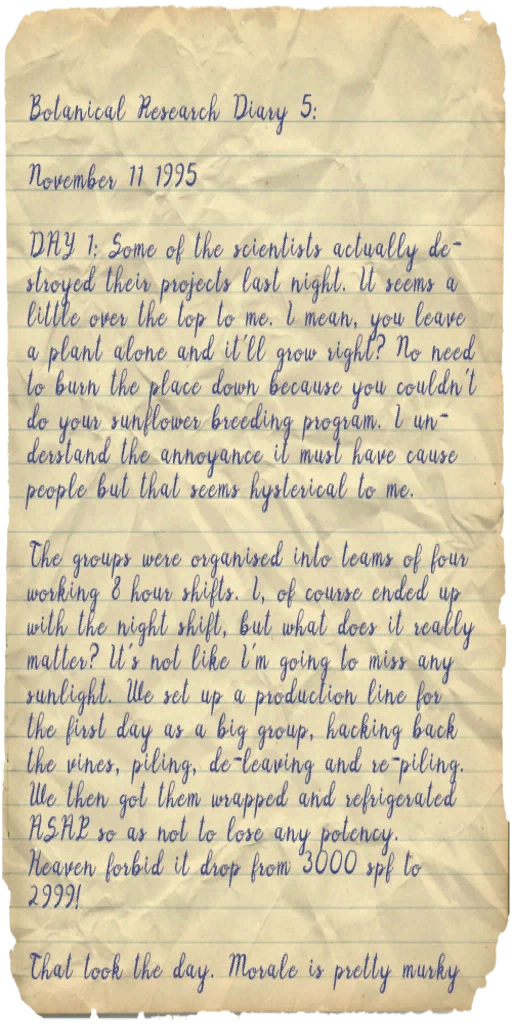 Botanical Research Diary 5:
November 11 1995
DAY 1: Some of the scientists actually de-
stroyed their projects last night. It seems a
little over the top to me. I mean, you leave
a plant alone and it'll grow right? No need
to burn the place down because you couldn't
do your sunflower breeding program. I un-
derstand the annoyance it must have cause
people but that seems hysterical to me.
The groups were organised into teams of four
working 8 hour shifts. I, of course ended up
with the night shift, but what does it really
matter? It's not like I'm going to miss any
sunlight. We set up a production line for
the first day as a big group, hacking back
the vines, piling, de-leaving and re-piling.
We then got them wrapped and refrigerated
ASAP so as not to lose any potency.
Heaven forbid it drop from 3000 spf to
2999!
That took the day. Morale is pretty murky